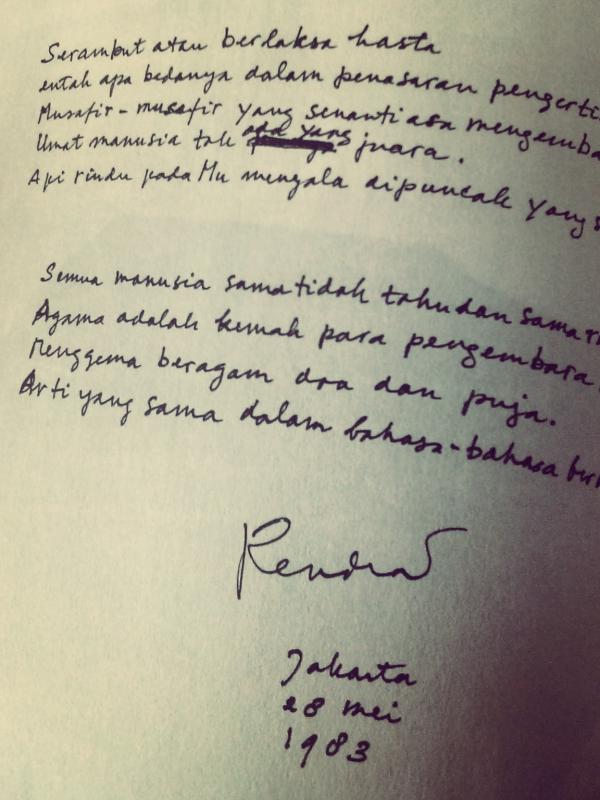 Serambut atau berlaksa hasta
entah apa bedanya dalam penasaran pengerti
Musafir-musafir yang senantiasa mengemba
Umat manusia tak ada yang juara.
Api rindu pada Mu menyala dipuncak yang s
Semua manusia sama tidak tahu dan sama r
Agama adalah kemah para pengembara.
Menggema beragam doa dan puja.
Arti yang sama dalam bahasa-bahasa ber
Rendra
Jakarta
28 mei
1983